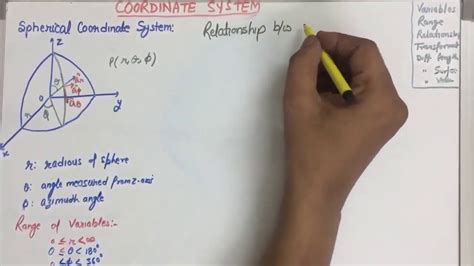 COORDINATE SYSTEM
Spherical Coordinate System:
Relationship b/w
z
P(r, θ, φ)
0
y
x
r: radious of sphere
θ: angle measured from z-axis
φ: azimuth angle
Range of Variables:-
0 ≤ r < ∞
0 ≤ θ < 180°
0 ≤ φ ≤ 360°
Variables
Range
Relationship
Transformat
Diff length
" Surface